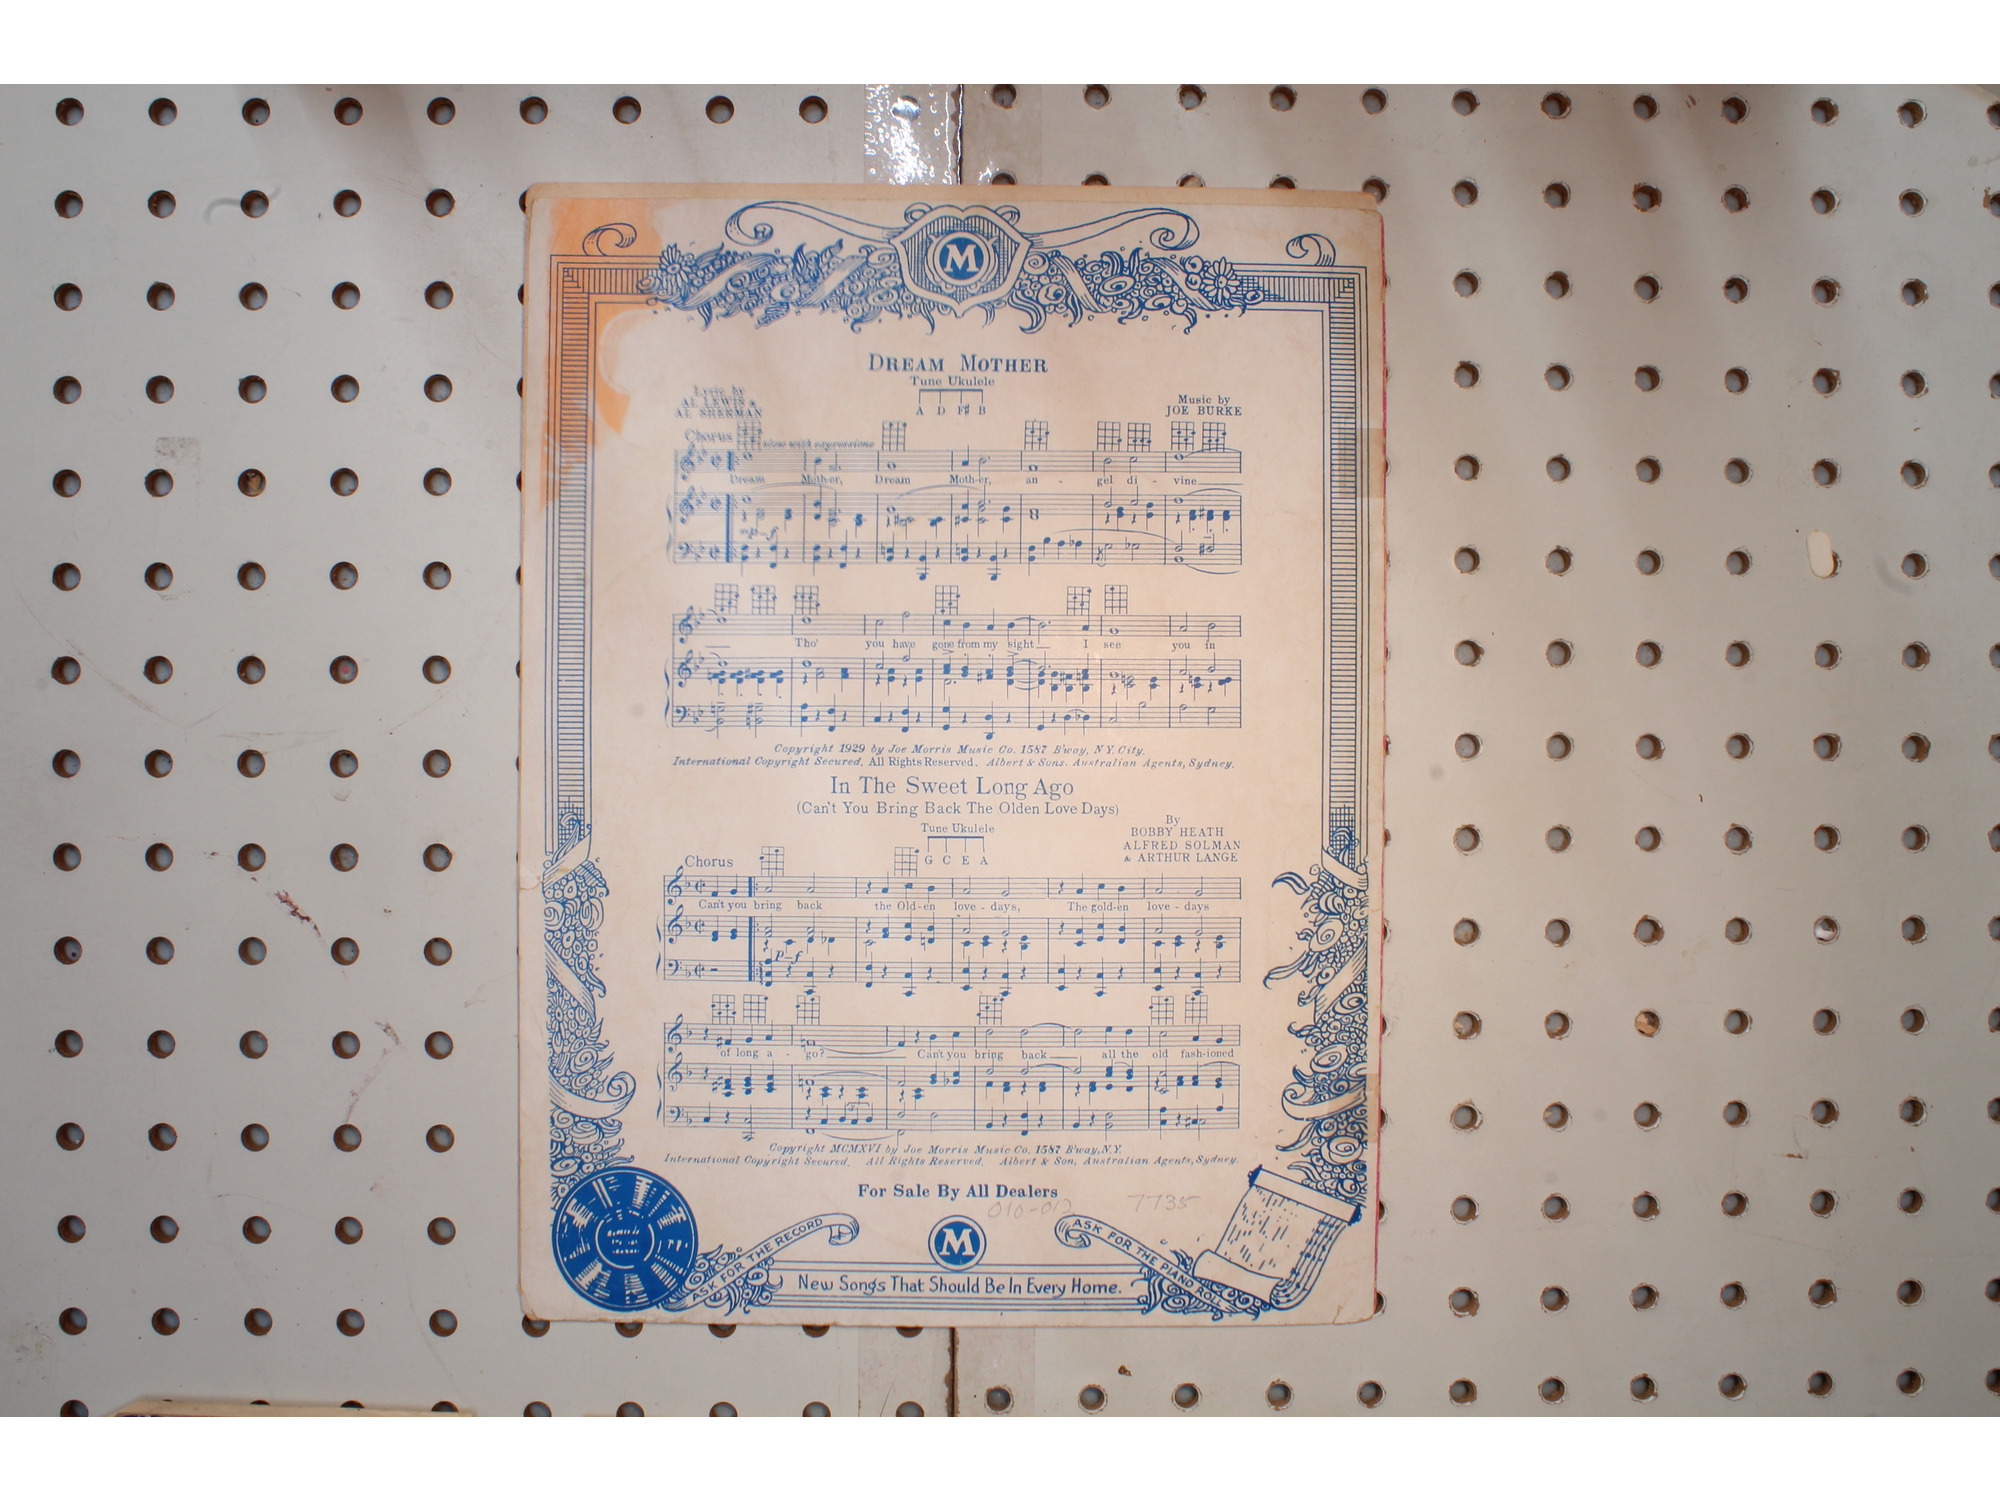 M
DREAM MOTHER
Tune Ukulele
A D F# B
Lyric by
AL LEWIS &
AL SHERMAN
Music by
JOE BURKE
Chorus
slow with expression
Dream Moth-er, Dream Moth-er, an - gel di - vine
p-f
Tho' you have gone from my sight I see you in
Copyright 1929 by Joe Morris Music Co. 1587 B'way, N.Y. City.
International Copyright Secured. All Rights Reserved. Albert & Sons. Australian Agents, Sydney.
In The Sweet Long Ago
(Can't You Bring Back The Olden Love Days)
Tune Ukulele
G C E A
By
BOBBY HEATH
ALFRED SOLMAN
& ARTHUR LANGE
Chorus
Can't you bring back the Old-en love - days, The gold-en love - days
p-f
of long a - go? Can't you bring back all the old fash-ioned
Copyright MCMXVI by Joe Morris Music Co. 1587 B'way, N.Y.
International Copyright Secured. All Rights Reserved. Albert & Son, Australian Agents, Sydney.
For Sale By All Dealers
010-012 7735
ASK FOR THE RECORD
M
ASK FOR THE PIANO ROLL
New Songs That Should Be In Every Home.